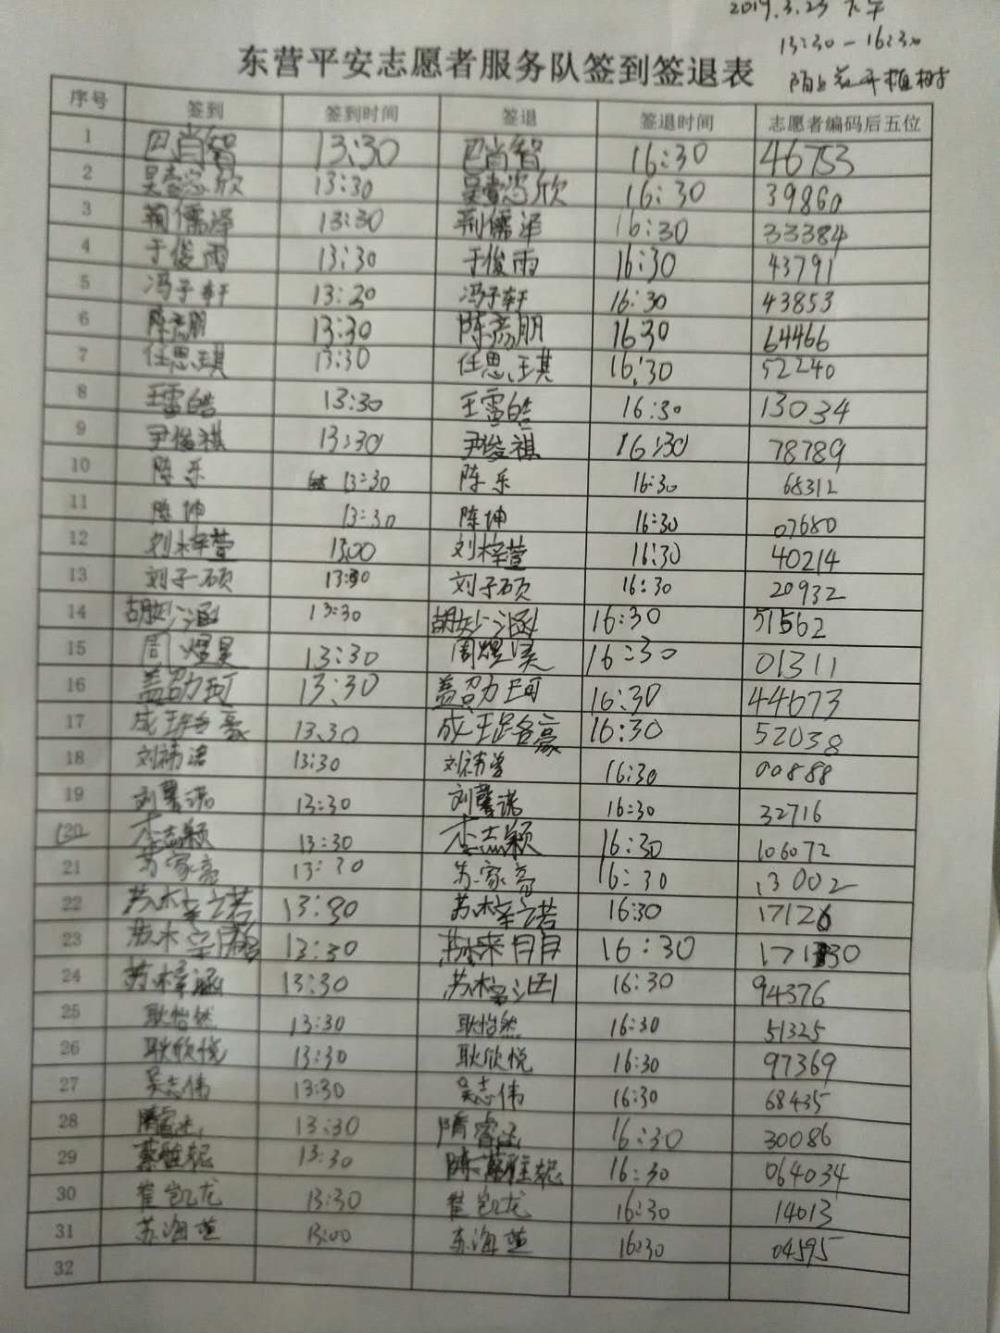 2019.3.23 下午
13:30-16:30
东营平安志愿者服务队签到签退表
植树
序号 签到 签到时间 签退 签退时间 志愿者编码后五位
1 13:30 16:30 46753
2 13:30 16:30 39860
3 13:30 荆儒泽 16:30 33384
4 于俊雨 13:30 于俊雨 16:30 43791
5 冯子轩 13:20 冯子轩 16:30 43853
6 陈彦朋 13:30 陈彦朋 1630 64466
7 任思琪 13:30 任思琪 16:30 52240
8 王雪皓 13:30 王雪皓 16:30 13034
9 尹俊祺 13:30 尹俊祺 16:30 78789
10 陈乐 13:30 陈乐 16:30 68312
11 陈坤 13:30 陈坤 16:30 07680
12 刘梓萱 13:00 刘梓萱 16:30 40214
13 刘子硕 13:30 刘子硕 16:30 20932
14 胡妙涵 13:30 胡妙涵 16:30 51562
15 周煜昊 13:30 周煜昊 16:30 01311
16 盖劭珂 13:30 盖劭珂 16:30 44673
17 成珞豪 13:30 成珞豪 16:30 52038
18 13:30 16:30 00888
19 刘馨诺 13:30 刘馨诺 16:30 32716
20 李志颖 13:30 李志颖 16:30 106072
21 苏家亮 13:30 苏家亮 16:30 13002
22 苏梓若 13:30 苏梓若 16:30 17126
23 13:30 16:30 30
24 苏梓涵 13:30 苏梓涵 16:30 94376
25 耿怡然 13:30 耿怡然 16:30 51325
26 耿欣悦 13:30 耿欣悦 16:30 97369
27 吴志伟 13:30 吴志伟 16:30 68435
28 隋睿 13:30 隋睿涵 16:30 30086
29 13:30 16:30 064034
30 崔凯龙 13:30 崔凯龙 16:30 14013
31 苏海燕 13:00 苏海燕 16:30 04595
32